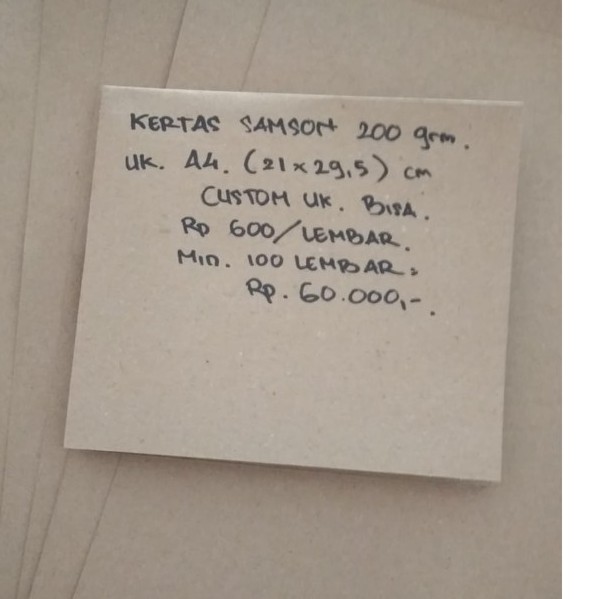 KERTAS SAMSON 200 grm.
UK. A4. (21 x 29,5) cm
CUSTOM UK. BISA.
Rp 600/LEMBAR.
Min. 100 LEMBAR =
Rp. 60.000,-.